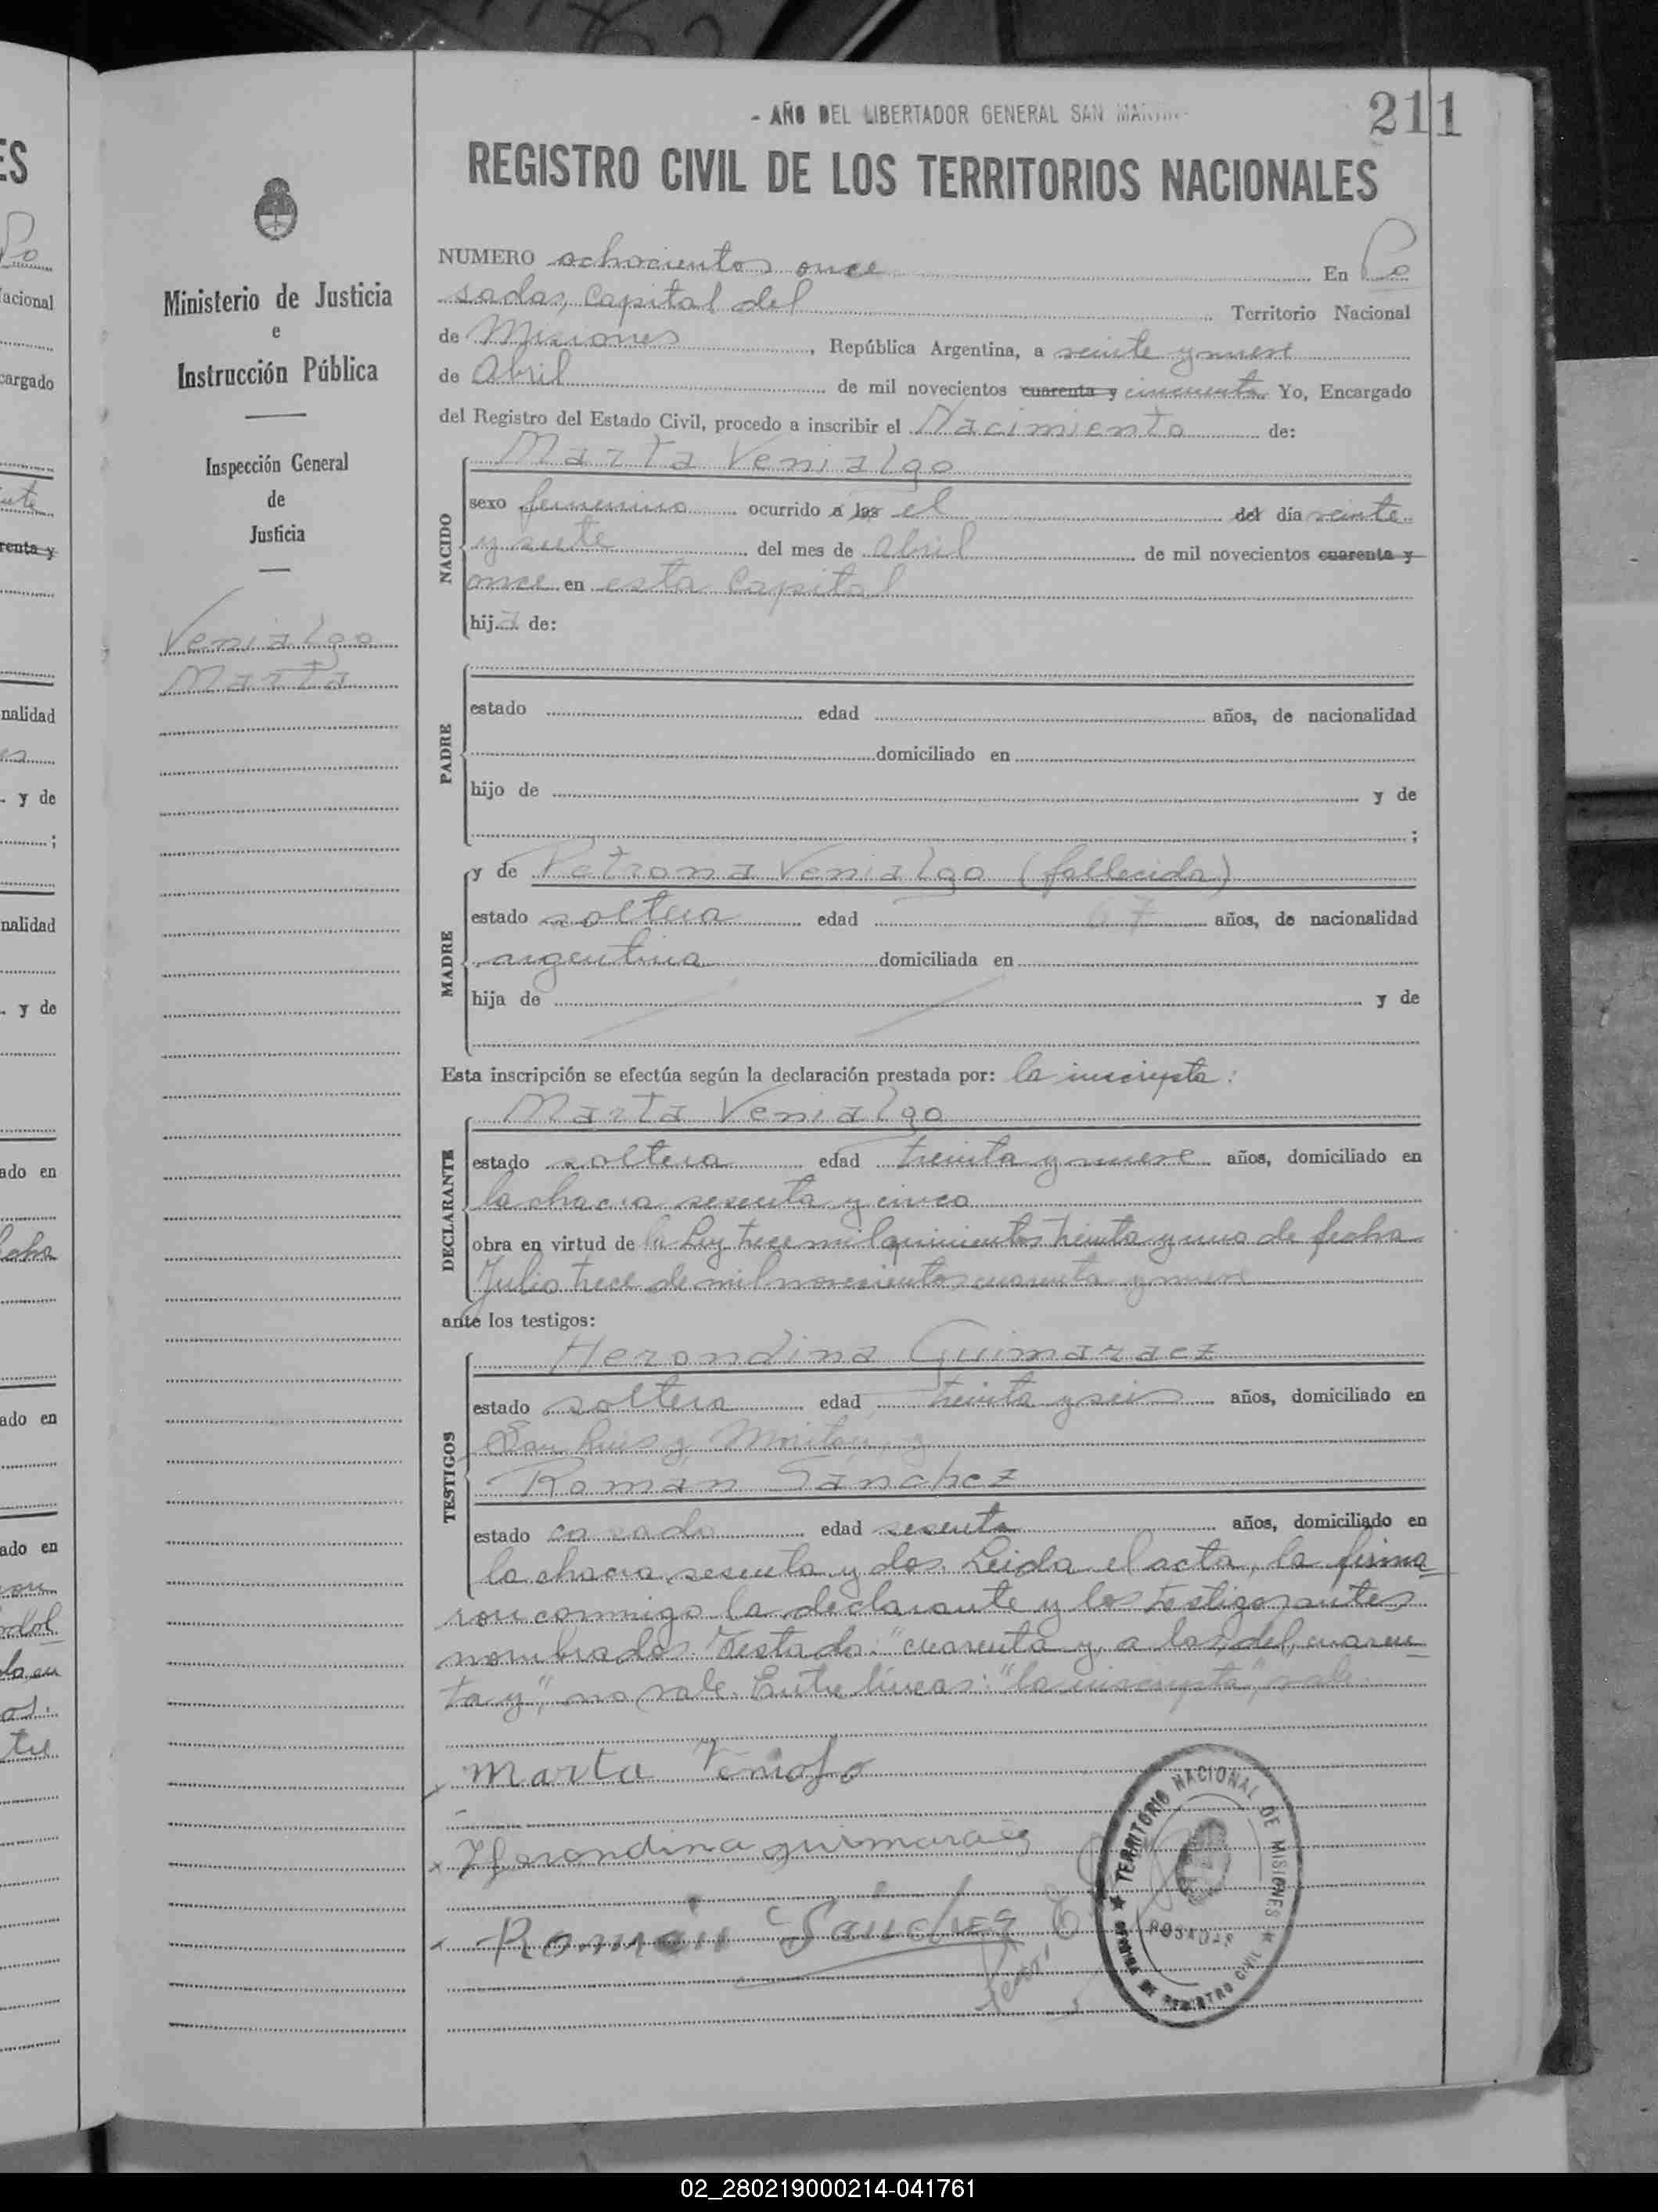 - AÑO DEL LIBERTADOR GENERAL SAN
211
REGISTRO CIVIL DE LOS TERRITORIOS NACIONALES
Ministerio de Justicia
e
Instrucción Pública
Inspección General
de
Justicia
Venialgo
Marta
NUMERO ochocientos once En Po
sadas, Capital del Territorio Nacional
de Misiones, República Argentina, a veinte y nueve
de Abril de mil novecientos cuarenta y cincuenta Yo, Encargado
del Registro del Estado Civil, procedo a inscribir el Nacimiento de:
Marta Venialgo
NACIDO
sexo femenino ocurrido a las el del día veinte
y siete del mes de abril de mil novecientos cuarenta y
once en esta Capital
hija de:
PADRE
estado edad años, de nacionalidad
domiciliado en
hijo de y de
;
MADRE
y de Petrona Venialgo (fallecida)
estado soltera edad 67 años, de nacionalidad
argentina domiciliada en
hija de y de
Esta inscripción se efectúa según la declaración prestada por: la inscripta:
Marta Venialgo
DECLARANTE
estado soltera edad treinta y nueve años, domiciliado en
la chacra sesenta y cinco
obra en virtud de la Ley trece mil quinientos treinta y uno de fecha
Julio trece de mil novecientos cuarenta y nueve
ante los testigos:
Herondina Guimaraez
TESTIGOS
estado soltera edad treinta y seis años, domiciliado en
San Luis y
Roman Sánchez
estado casado edad sesenta años, domiciliado en
la chacra sesenta y dos. Leida el acta, la firma
ron conmigo la declarante y los testigos antes
nombrados. Testado: "cuarenta y, a las, del, cuaren
ta y", no vale. Entre líneas: "la inscripta", vale.
Marta
Herondina guimaraes
Román Sanchez
TERRITORIO NACIONAL DE MISIONES
POSADAS
REGISTRO CIVIL
ES
Po
acional
cargado
renta y
nalidad
y de
;
nalidad
y de
ado en
fecha
ado en
ado en
02_280219000214-041761